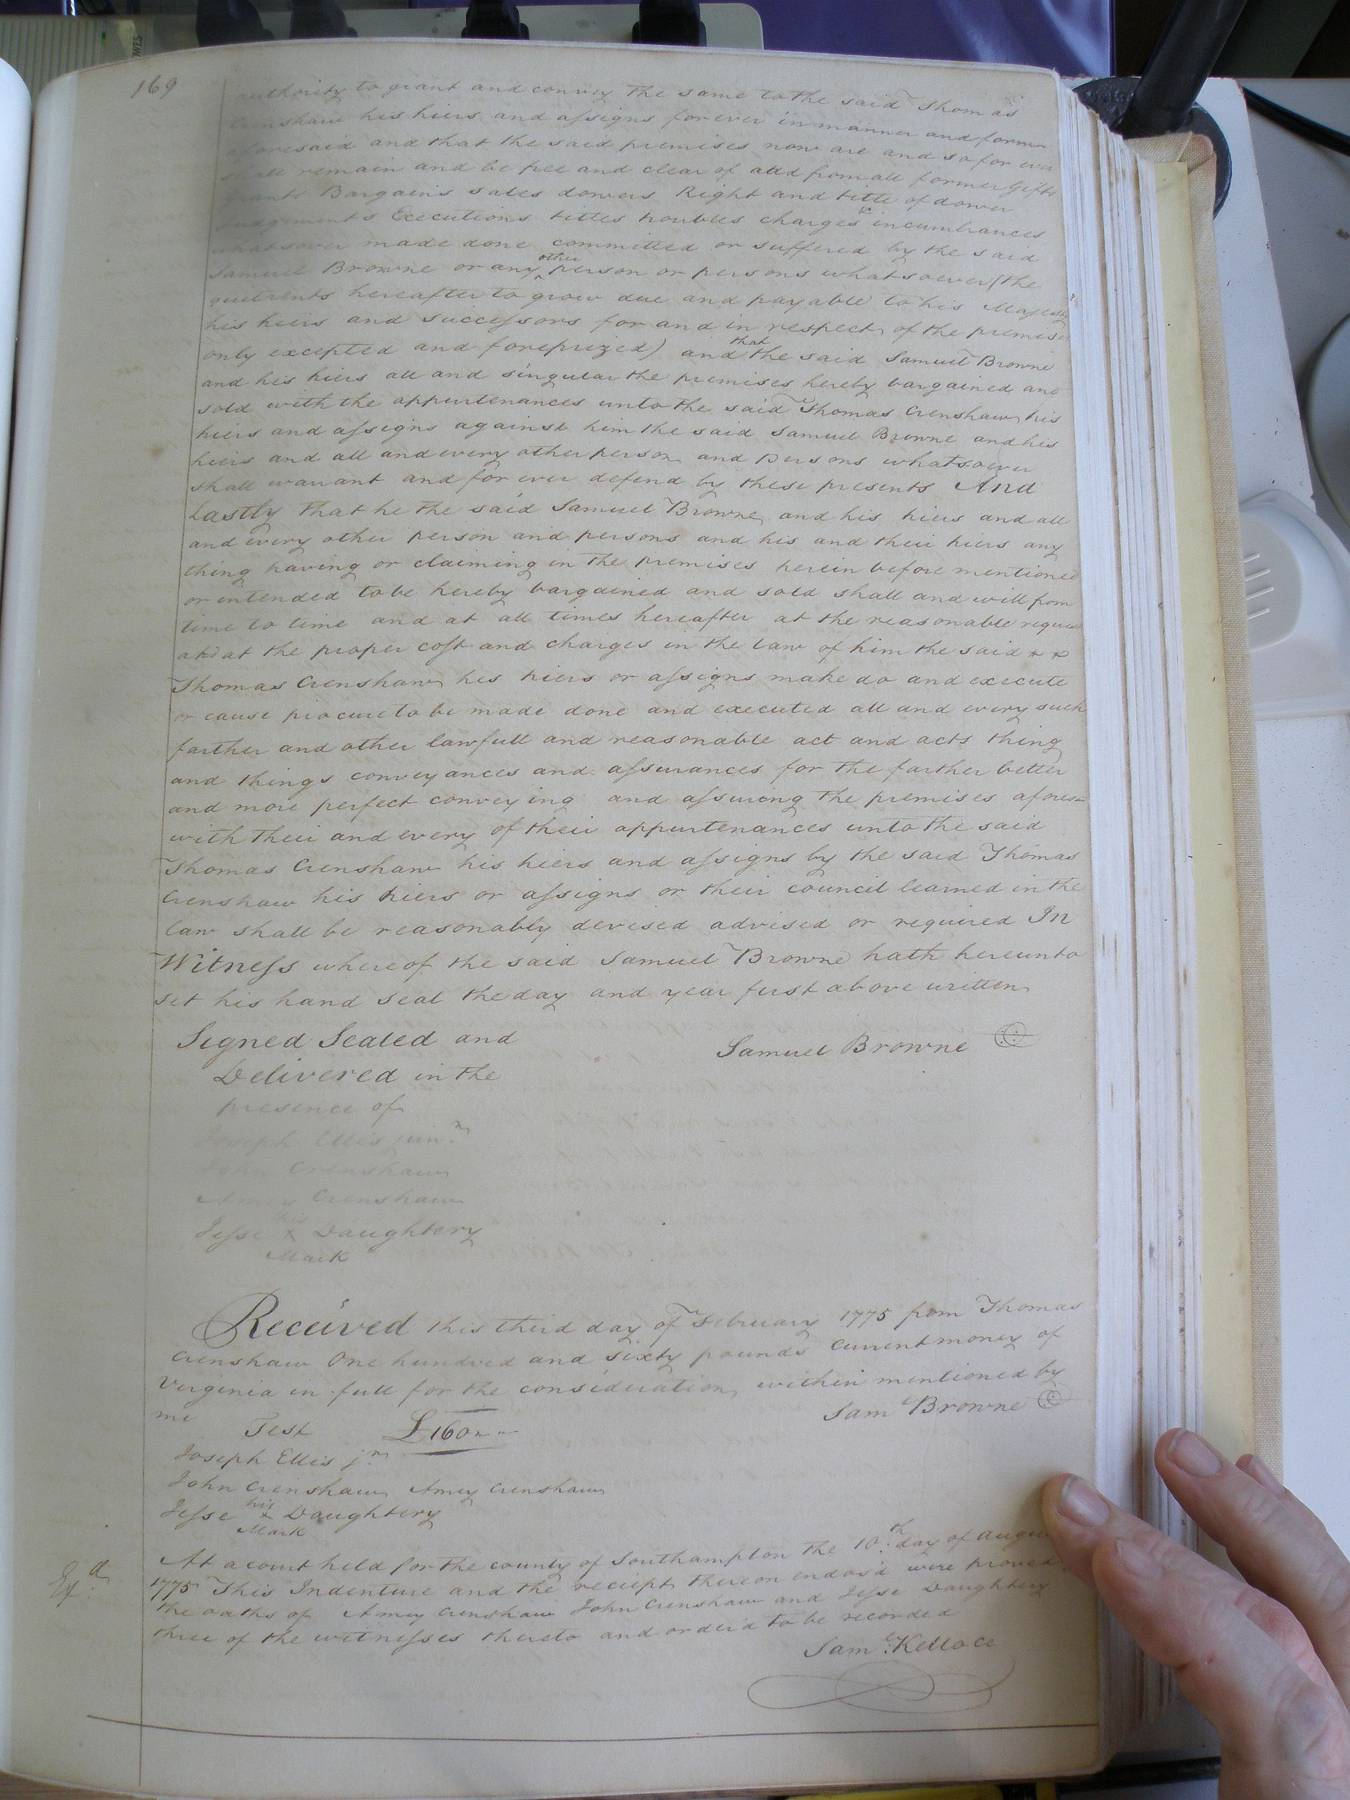 169
authority to grant and convey the same to the said Thomas
Crenshaw his hiers and assigns forever in manner and form
aforesaid and that the said premises now are and so for ever
shall remain and be free and clear of and from all former Gifts
grants Bargains sales dowers Right and title of dower
Judgements Executions titles troubles charges & incumbrances
whatsover made done committed or suffered by the said
Samuel Browne or any other person or persons whatsoever (the
quitrents hereafter to grow due and payable to his Majesty
his heirs and successors for and in respect of the premises
only excepted and foreprized) and that the said Samuel Browne
and his hiers all and singular the premises hereby bargained and
sold with the appurtenances unto the said Thomas Crenshaw his
hiers and assigns against him the said Samuel Browne and his
hiers and all and every other person and Persons whatsoever
shall warrant and for ever defend by these presents And
Lastly that he the said Samuel Browne and his hiers and all
and every other person and persons and his and their hiers any
thing having or claiming in the premises herein before mentioned
or intended to be hereby bargained and sold shall and will from
time to time and at all times hereafter at the reasonable request
and at the proper cost and charges in the law of him the said
Thomas Crenshaw his hiers or assigns make do and execute
or cause procure to be made done and executed all and every such
farther and other lawfull and reasonable act and acts thing
and things conveyances and assurances for the farther better
and more perfect conveying and assuring the premises afores
with their and every of their appurtenances unto the said
Thomas Crenshaw his hiers and assigns by the said Thomas
Crenshaw his hiers or assigns or their council learned in the
law shall be reasonably devised advised or required In
Witness whereof the said Samuel Browne hath hereunto
set his hand seal the day and year first above written
Signed Sealed and
Samuel Browne
Delivered in the
presence of
Joseph Ellis junr
John Crenshaw
Amey Crenshaw
Jesse his x Daughtery
Mark
Received this third day of February 1775 from Thomas
Crenshaw One hundred and sixty pounds current money of
Virginia in full for the consideration within mentioned by
me
Saml Browne
Test £160
Joseph Ellis jr
John Crenshaw Amey Crenshaw
Jesse his x Daughtery
Mark
At a court held for the county of Southampton the 10th day of August
Exd
1775 This Indenture and the reciept thereon endos'd were proved
the oaths of Amey Crenshaw John Crenshaw and Jesse Daughtery
three of the witnesses thereto and order'd to be recorded
Saml Kello cc